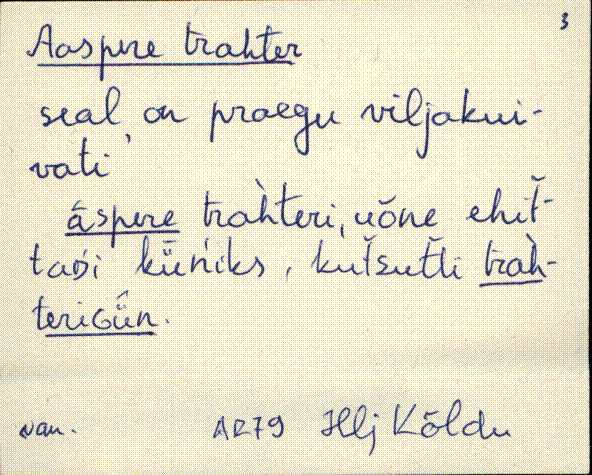 3
Aaspere trahter
seal on praegu viljakui-
vati
āspere trah̀teri, uǒne ehit̆-
taśi kǖńiks, kut̆sut̆ti trah̀-
teriGǖn.
van. AR79 Hlj Kõldu